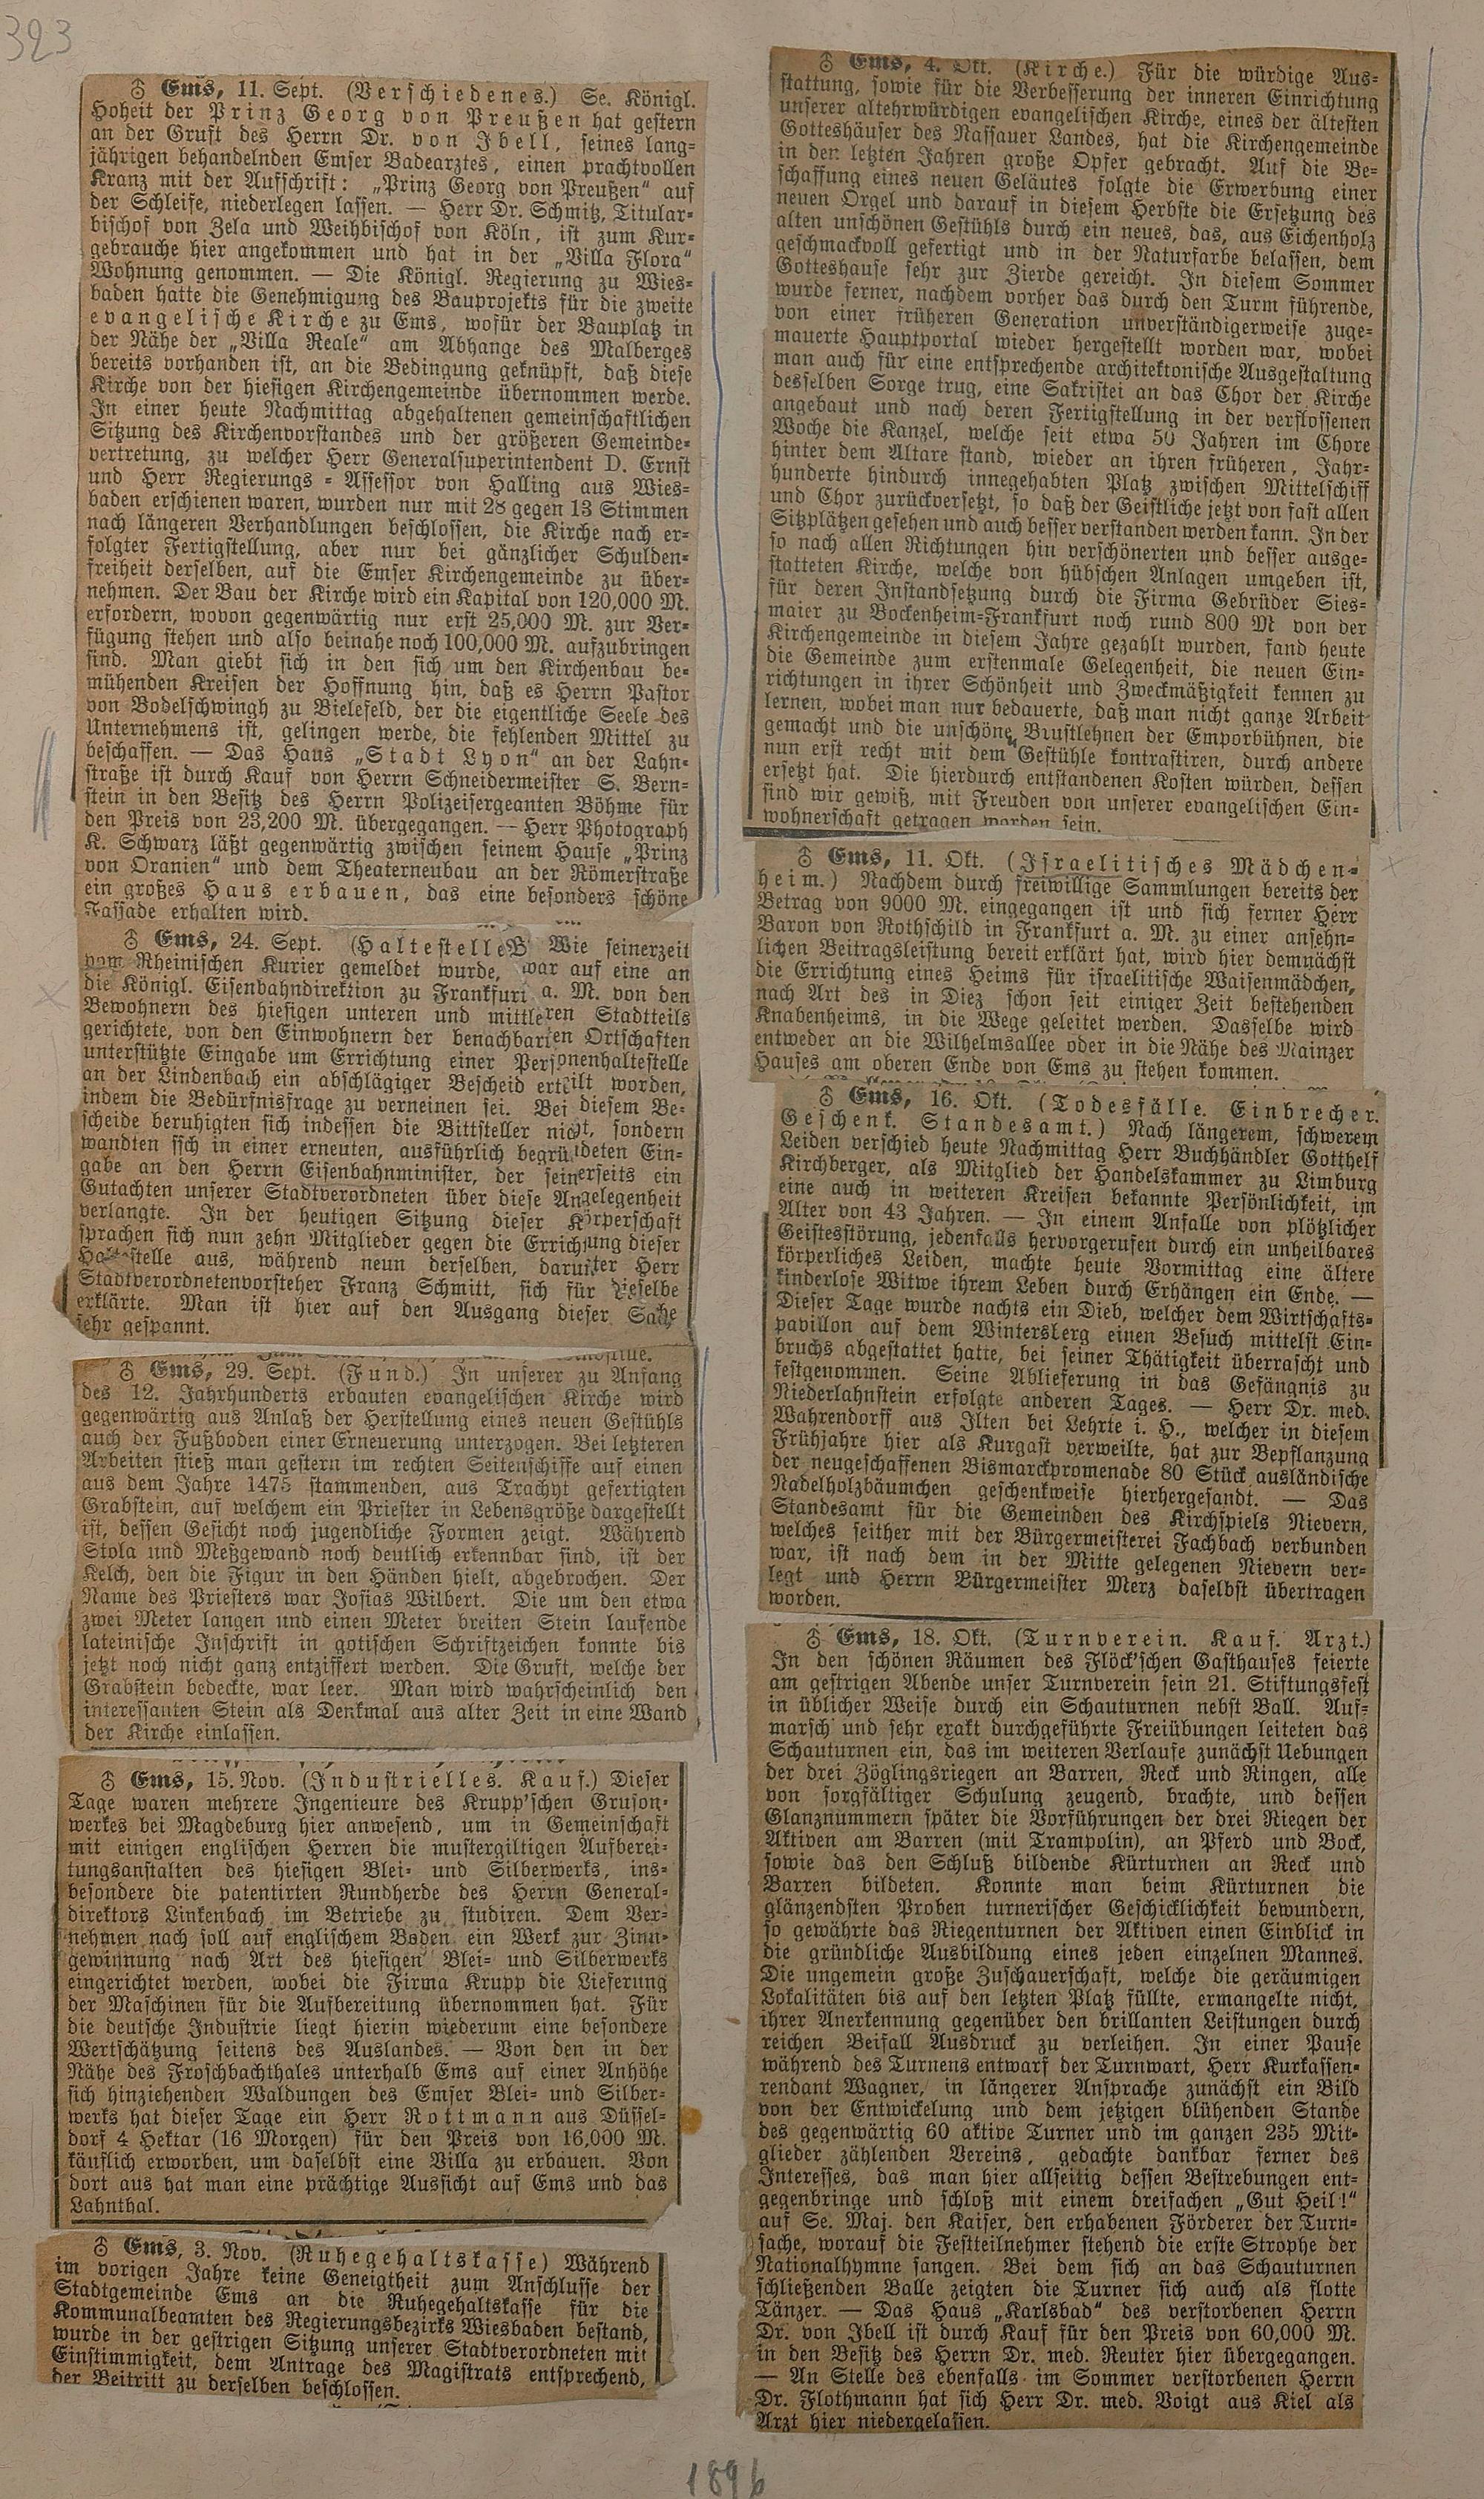 323
♁ Ems, 11. Sept. (Verschiedenes.) Se. Königl.
Hoheit der Prinz Georg von Preußen hat gestern
an der Gruft des Herrn Dr. von Ibell, seines lang-
jährigen behandelnden Emser Badearztes, einen prachtvollen
Kranz mit der Aufschrift: „Prinz Georg von Preußen“ auf
der Schleife, niederlegen lassen. — Herr Dr. Schmitz, Titular-
bischof von Zela und Weihbischof von Köln, ist zum Kur-
gebrauche hier angekommen und hat in der „Villa Flora“
Wohnung genommen. — Die Königl. Regierung zu Wies-
baden hatte die Genehmigung des Bauprojekts für die zweite
evangelische Kirche zu Ems, wofür der Bauplatz in
der Nähe der „Villa Reale“ am Abhange des Malberges
bereits vorhanden ist, an die Bedingung geknüpft, daß diese
Kirche von der hiesigen Kirchengemeinde übernommen werde.
In einer heute Nachmittag abgehaltenen gemeinschaftlichen
Sitzung des Kirchenvorstandes und der größeren Gemeinde-
vertretung, zu welcher Herr Generalsuperintendent D. Ernst
und Herr Regierungs-Assessor von Halling aus Wies-
baden erschienen waren, wurden nur mit 28 gegen 13 Stimmen
nach längeren Verhandlungen beschlossen, die Kirche nach er-
folgter Fertigstellung, aber nur bei gänzlicher Schulden-
freiheit derselben, auf die Emser Kirchengemeinde zu über-
nehmen. Der Bau der Kirche wird ein Kapital von 120,000 M.
erfordern, wovon gegenwärtig nur erst 25,000 M. zur Ver-
fügung stehen und also beinahe noch 100,000 M. aufzubringen
sind. Man giebt sich in den sich um den Kirchenbau be-
mühenden Kreisen der Hoffnung hin, daß es Herrn Pastor
von Bodelschwingh zu Bielefeld, der die eigentliche Seele des
Unternehmens ist, gelingen werde, die fehlenden Mittel zu
beschaffen. — Das Haus „Stadt Lyon“ an der Lahn-
straße ist durch Kauf von Herrn Schneidermeister S. Bern-
stein in den Besitz des Herrn Polizeisergeanten Böhme für
den Preis von 23,200 M. übergegangen. — Herr Photograph
K. Schwarz läßt gegenwärtig zwischen seinem Hause „Prinz
von Oranien“ und dem Theaterneubau an der Römerstraße
ein großes Haus erbauen, das eine besonders schöne
Fassade erhalten wird.
♁ Ems, 24. Sept. (Haltestelle Wie seinerzeit
vom Rheinischen Kurier gemeldet wurde, war auf eine an
die Königl. Eisenbahndirektion zu Frankfurt a. M. von den
Bewohnern des hiesigen unteren und mittleren Stadtteils
gerichtete, von den Einwohnern der benachbarten Ortschaften
unterstützte Eingabe um Errichtung einer Personenhaltestelle
an der Lindenbach ein abschlägiger Bescheid erteilt worden,
indem die Bedürfnisfrage zu verneinen sei. Bei diesem Be-
scheide beruhigten sich indessen die Bittsteller nicht, sondern
wandten ssich in einer erneuten, ausführlich begründeten Ein-
gabe an den Herrn Eisenbahnminister, der seinerseits ein
Gutachten unserer Stadtverordneten über diese Angelegenheit
verlangte. In der heutigen Sitzung dieser Körperschaft
sprachen sich nun zehn Mitglieder gegen die Errichtung dieser
Haltestelle aus, während neun derselben, darunter Herr
Stadtverordnetenvorsteher Franz Schmitt, sich für dieselbe
erklärte. Man ist hier auf den Ausgang dieser Sache
sehr gespannt.
♁ Ems, 29. Sept. (Fund.) In unserer zu Anfang
des 12. Jahrhunderts erbauten evangelischen Kirche wird
gegenwärtig aus Anlaß der Herstellung eines neuen Gestühls
auch der Fußboden einer Erneuerung unterzogen. Bei letzteren
Arbeiten stieß man gestern im rechten Seitenschiffe auf einen
aus dem Jahre 1475 stammenden, aus Trachyt gefertigten
Grabstein, auf welchem ein Priester in Lebensgröße dargestellt
ist, dessen Gesicht noch jugendliche Formen zeigt. Während
Stola und Meßgewand noch deutlich erkennbar sind, ist der
Kelch, den die Figur in den Händen hielt, abgebrochen. Der
Name des Priesters war Josias Wilbert. Die um den etwa
zwei Meter langen und einen Meter breiten Stein laufende
lateinische Inschrift in gotischen Schriftzeichen konnte bis
jetzt noch nicht ganz entziffert werden. Die Gruft, welche der
Grabstein bedeckte, war leer. Man wird wahrscheinlich den
interessanten Stein als Denkmal aus alter Zeit in eine Wand
der Kirche einlassen.
♁ Ems, 15. Nov. (Industrielles. Kauf.) Dieser
Tage waren mehrere Ingenieure des Krupp'schen Gruson-
werkes bei Magdeburg hier anwesend, um in Gemeinschaft
mit einigen englischen Herren die mustergiltigen Aufberei-
tungsanstalten des hiesigen Blei- und Silberwerks, ins-
besondere die patentirten Rundherde des Herrn General-
direktors Linkenbach im Betriebe zu studiren. Dem Ver-
nehmen nach soll auf englischem Boden ein Werk zur Zinn-
gewinnung nach Art des hiesigen Blei- und Silberwerks
eingerichtet werden, wobei die Firma Krupp die Lieferung
der Maschinen für die Aufbereitung übernommen hat. Für
die deutsche Industrie liegt hierin wiederum eine besondere
Wertschätzung seitens des Auslandes. — Von den in der
Nähe des Froschbachthales unterhalb Ems auf einer Anhöhe
sich hinziehenden Waldungen des Emser Blei- und Silber-
werks hat dieser Tage ein Herr Rottmann aus Düssel-
dorf 4 Hektar (16 Morgen) für den Preis von 16,000 M.
käuflich erworben, um daselbst eine Villa zu erbauen. Von
dort aus hat man eine prächtige Aussicht auf Ems und das
Lahnthal.
♁ Ems, 3. Nov. (Ruhegehaltskasse) Während
im vorigen Jahre keine Geneigtheit zum Anschlusse der
Stadtgemeinde Ems an die Ruhegehaltskasse für die
Kommunalbeamten des Regierungsbezirks Wiesbaden bestand,
wurde in der gestrigen Sitzung unserer Stadtverordneten mit
Einstimmigkeit, dem Antrage des Magistrats entsprechend,
der Beitritt zu derselben beschlossen.
♁ Ems, 4. Okt. (Kirche.) Für die würdige Aus-
stattung, sowie für die Verbesserung der inneren Einrichtung
unserer altehrwürdigen evangelischen Kirche, eines der ältesten
Gotteshäuser des Nassauer Landes, hat die Kirchengemeinde
in den letzten Jahren große Opfer gebracht. Auf die Be-
schaffung eines neuen Geläutes folgte die Erwerbung einer
neuen Orgel und darauf in diesem Herbste die Ersetzung des
alten unschönen Gestühls durch ein neues, das, aus Eichenholz
geschmackvoll gefertigt und in der Naturfarbe belassen, dem
Gotteshause sehr zur Zierde gereicht. In diesem Sommer
wurde ferner, nachdem vorher das durch den Turm führende,
von einer früheren Generation unverständigerweise zuge-
mauerte Hauptportal wieder hergestellt worden war, wobei
man auch für eine entsprechende architektonische Ausgestaltung
desselben Sorge trug, eine Sakristei an das Chor der Kirche
angebaut und nach deren Fertigstellung in der verflossenen
Woche die Kanzel, welche seit etwa 50 Jahren im Chore
hinter dem Altare stand, wieder an ihren früheren, Jahr-
hunderte hindurch innegehabten Platz zwischen Mittelschiff
und Chor zurückversetzt, so daß der Geistliche jetzt von fast allen
Sitzplätzen gesehen und auch besser verstanden werden kann. In der
so nach allen Richtungen hin verschönerten und besser ausge-
statteten Kirche, welche von hübschen Anlagen umgeben ist,
für deren Instandsetzung durch die Firma Gebrüder Sies-
maier zu Bockenheim-Frankfurt noch rund 800 M von der
Kirchengemeinde in diesem Jahre gezahlt wurden, fand heute
die Gemeinde zum erstenmale Gelegenheit, die neuen Ein-
richtungen in ihrer Schönheit und Zweckmäßigkeit kennen zu
lernen, wobei man nur bedauerte, daß man nicht ganze Arbeit
gemacht und die unschönen Brustlehnen der Emporbühnen, die
nun erst recht mit dem Gestühle kontrastiren, durch andere
ersetzt hat. Die hierdurch entstandenen Kosten würden, dessen
sind wir gewiß, mit Freuden von unserer evangelischen Ein-
wohnerschaft getragen worden sein.
♁ Ems, 11. Okt. (Israelitisches Mädchen-
heim.) Nachdem durch freiwillige Sammlungen bereits der
Betrag von 9000 M. eingegangen ist und sich ferner Herr
Baron von Rothschild in Frankfurt a. M. zu einer ansehn-
lichen Beitragsleistung bereit erklärt hat, wird hier demnächst
die Errichtung eines Heims für israelitische Waisenmädchen,
nach Art des in Diez schon seit einiger Zeit bestehenden
Knabenheims, in die Wege geleitet werden. Dasselbe wird
entweder an die Wilhelmsallee oder in die Nähe des Mainzer
Hauses am oberen Ende von Ems zu stehen kommen.
♁ Ems, 16. Okt. (Todesfälle. Einbrecher.
Geschenk. Standesamt.) Nach längerem, schwerem
Leiden verschied heute Nachmittag Herr Buchhändler Gotthelf
Kirchberger, als Mitglied der Handelskammer zu Limburg
eine auch in weiteren Kreisen bekannte Persönlichkeit, im
Alter von 43 Jahren. — In einem Anfalle von plötzlicher
Geistesstörung, jedenfalls hervorgerufen durch ein unheilbares
körperliches Leiden, machte heute Vormittag eine ältere
kinderlose Witwe ihrem Leben durch Erhängen ein Ende. —
Dieser Tage wurde nachts ein Dieb, welcher dem Wirtschafts-
pavillon auf dem Wintersberg einen Besuch mittelst Ein-
bruchs abgestattet hatte, bei seiner Thätigkeit überrascht und
festgenommen. Seine Ablieferung in das Gefängnis zu
Niederlahnstein erfolgte anderen Tages. — Herr Dr. med.
Wahrendorff aus Ilten bei Lehrte i. H., welcher in diesem
Frühjahre hier als Kurgast verweilte, hat zur Bepflanzung
der neugeschaffenen Bismarckpromenade 80 Stück ausländische
Nadelholzbäumchen geschenkweise hierhergesandt. — Das
Standesamt für die Gemeinden des Kirchspiels Nievern,
welches seither mit der Bürgermeisterei Fachbach verbunden
war, ist nach dem in der Mitte gelegenen Nievern ver-
legt und Herrn Bürgermeister Merz daselbst übertragen
worden.
♁ Ems, 18. Okt. (Turnverein. Kauf. Arzt.)
In den schönen Räumen des Flöck'schen Gasthauses feierte
am gestrigen Abende unser Turnverein sein 21. Stiftungsfest
in üblicher Weise durch ein Schauturnen nebst Ball. Auf-
marsch und sehr exakt durchgeführte Freiübungen leiteten das
Schauturnen ein, das im weiteren Verlaufe zunächst Uebungen
der drei Zöglingsriegen an Barren, Reck und Ringen, alle
von sorgfältiger Schulung zeugend, brachte, und dessen
Glanznummern später die Vorführungen der drei Riegen der
Aktiven am Barren (mit Trampolin), an Pferd und Bock,
sowie das den Schluß bildende Kürturnen an Reck und
Barren bildeten. Konnte man beim Kürturnen die
glänzendsten Proben turnerischer Geschicklichkeit bewundern,
so gewährte das Riegenturnen der Aktiven einen Einblick in
die gründliche Ausbildung eines jeden einzelnen Mannes.
Die ungemein große Zuschauerschaft, welche die geräumigen
Lokalitäten bis auf den letzten Platz füllte, ermangelte nicht,
ihrer Anerkennung gegenüber den brillanten Leistungen durch
reichen Beifall Ausdruck zu verleihen. In einer Pause
während des Turnens entwarf der Turnwart, Herr Kurkassen-
rendant Wagner, in längerer Ansprache zunächst ein Bild
von der Entwickelung und dem jetzigen blühenden Stande
des gegenwärtig 60 aktive Turner und im ganzen 235 Mit-
glieder zählenden Vereins, gedachte dankbar ferner des
Interesses, das man hier allseitig dessen Bestrebungen ent-
gegenbringe und schloß mit einem dreifachen „Gut Heil!“
auf Se. Maj. den Kaiser, den erhabenen Förderer der Turn-
sache, worauf die Festteilnehmer stehend die erste Strophe der
Nationalhymne sangen. Bei dem sich an das Schauturnen
schließenden Balle zeigten die Turner sich auch als flotte
Tänzer. — Das Haus „Karlsbad“ des verstorbenen Herrn
Dr. von Ibell ist durch Kauf für den Preis von 60,000 M.
in den Besitz des Herrn Dr. med. Reuter hier übergegangen.
— An Stelle des ebenfalls im Sommer verstorbenen Herrn
Dr. Flothmann hat sich Herr Dr. med. Voigt aus Kiel als
Arzt hier niedergelassen.
1896